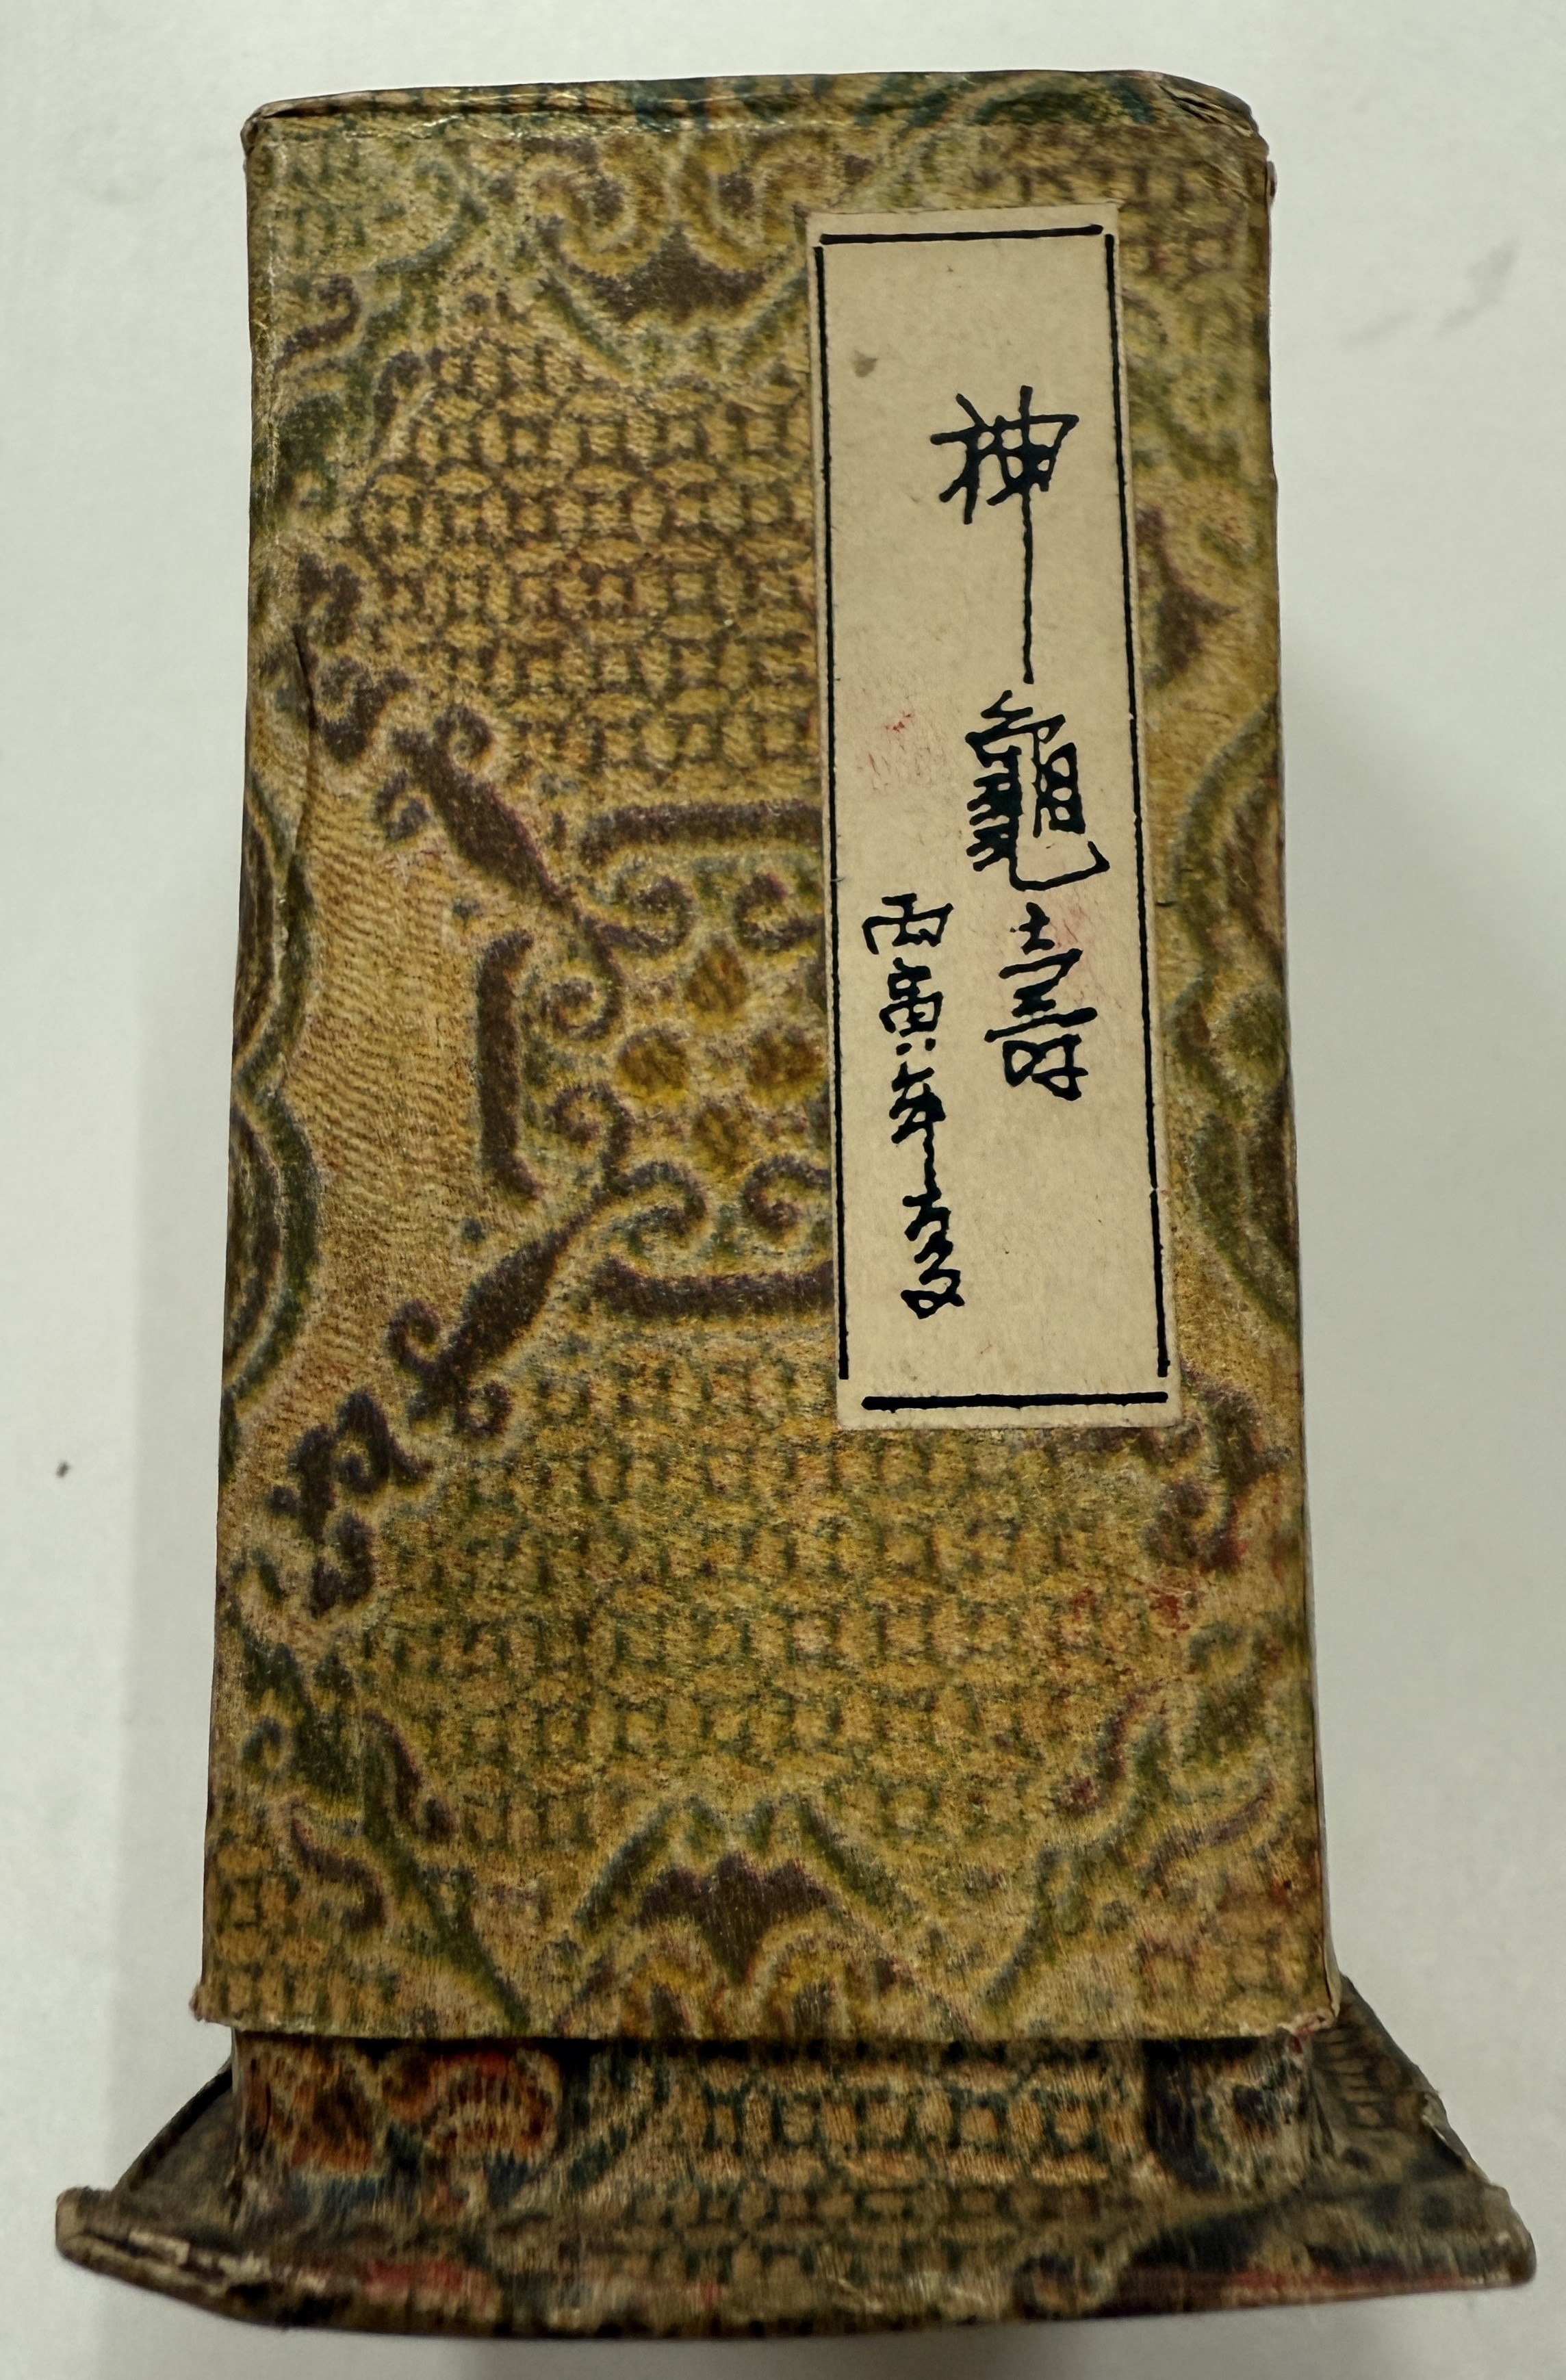 神龜壽
丙寅年夏